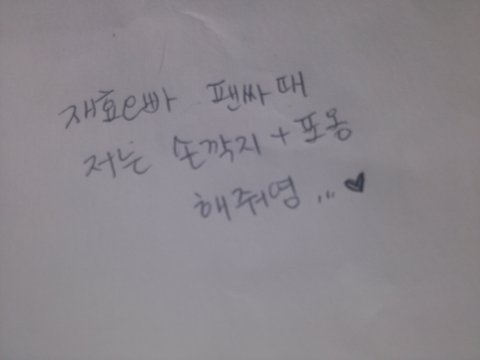 재효e빠 팬싸때
저는 손깍지+포옹
해줘영...♥